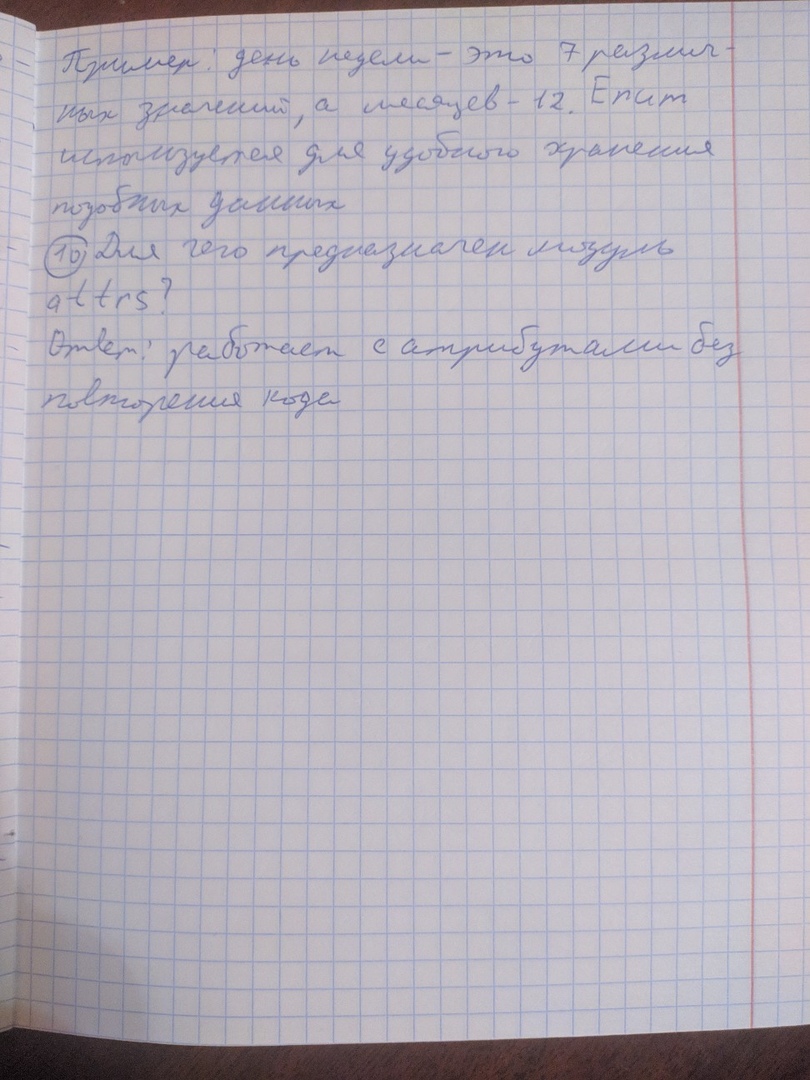 Пример: день недели – это 7 различ-
ных значений, а месяцев – 12. Enum
используется для удобного хранения
подобных данных
10 Для чего предназначен модуль
attrs?
Ответ: работает с атрибутами без
повторения кода